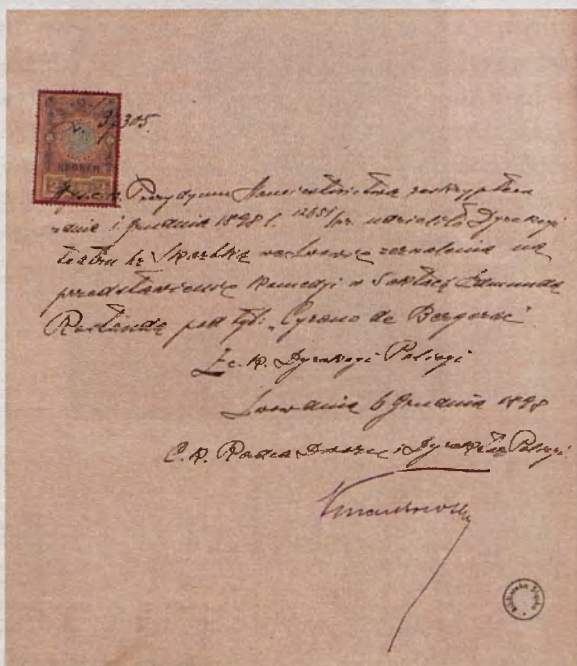 N. 3/305.
KRONEN
Wys. c. k. Prezydyum Namiestnictwa reskryptem
z dnia 1 grudnia 1898 l. 12651/pr. udzieliło Dyrekcyi
teatru hr. Skarbka we Lwowie zezwolenia na
przedstawienie Komedyi w 5 aktach Edmunda
Rostanda pod tyt: "Cyrano de Bergerac"
Z c. k. Dyrekcyi Policyi
Lwów dnia 6 Grudnia 1898
C. k. Radca Dworu i Dyrektor Policyi
Biblioteka Śląska